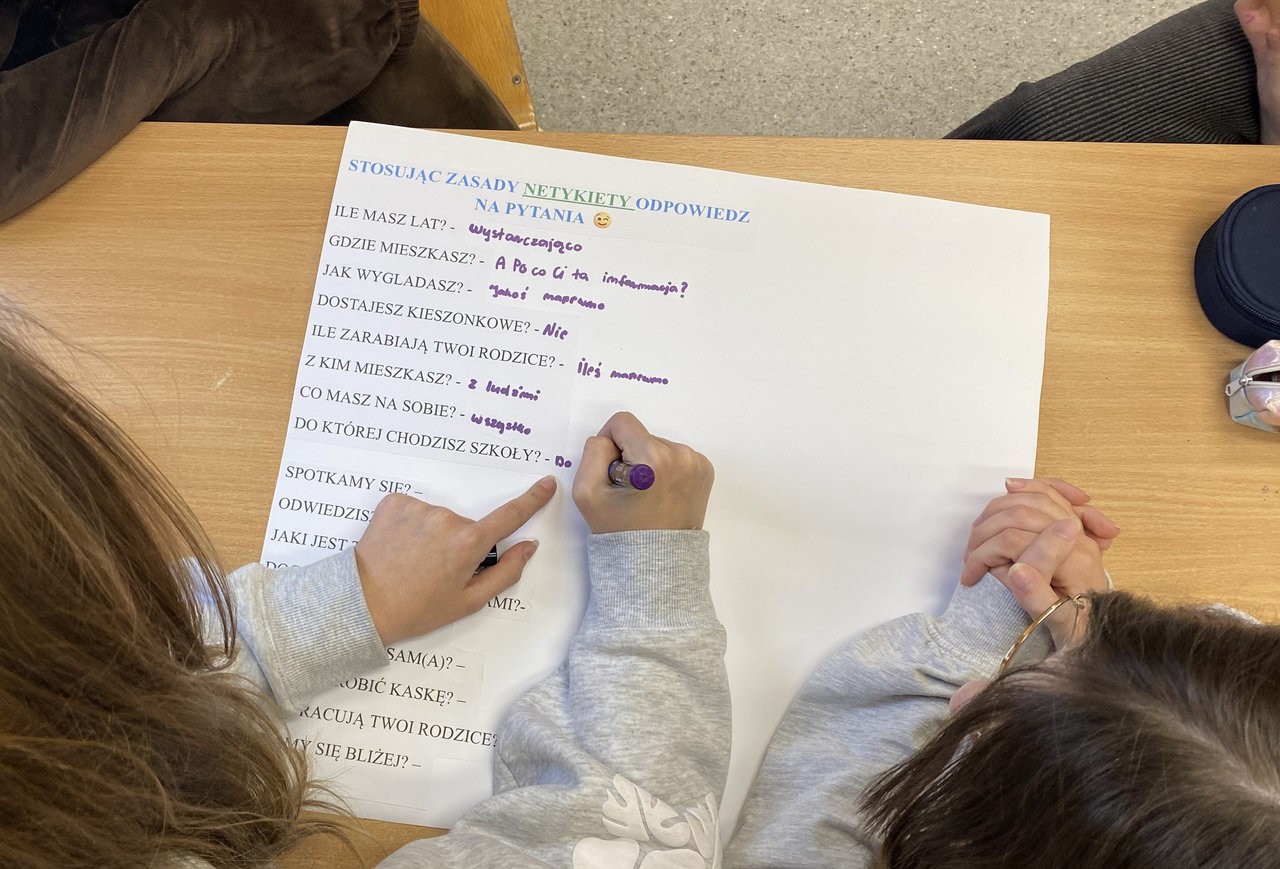 STOSUJĄC ZASADY NETYKIETY ODPOWIEDZ
NA PYTANIA 😉
ILE MASZ LAT? - wystarczająco
GDZIE MIESZKASZ? - A Po co Ci ta imformacja?
JAK WYGLADASZ? - Jakoś napewno
DOSTAJESZ KIESZONKOWE? - Nie
ILE ZARABIAJĄ TWOI RODZICE? - İleś napewno
Z KIM MIESZKASZ? - z ludźmi
CO MASZ NA SOBIE? - wszystko
DO KTÓREJ CHODZISZ SZKOŁY? - Do
SPOTKAMY SIĘ? –
ODWIEDZIS
JAKI JEST
AMI?-
SAM(A)? –
ROBIĆ KASKĘ? –
RACUJĄ TWOI RODZICE?
MY SIĘ BLIŻEJ? –